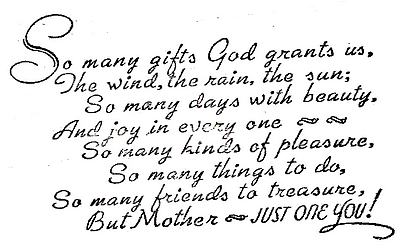 So many gifts God grants us,
The wind, the rain, the sun;
So many days with beauty,
And joy in every one ~ ~
So many kinds of pleasure,
So many things to do,
So many friends to treasure,
But Mother ~ JUST ONE YOU!